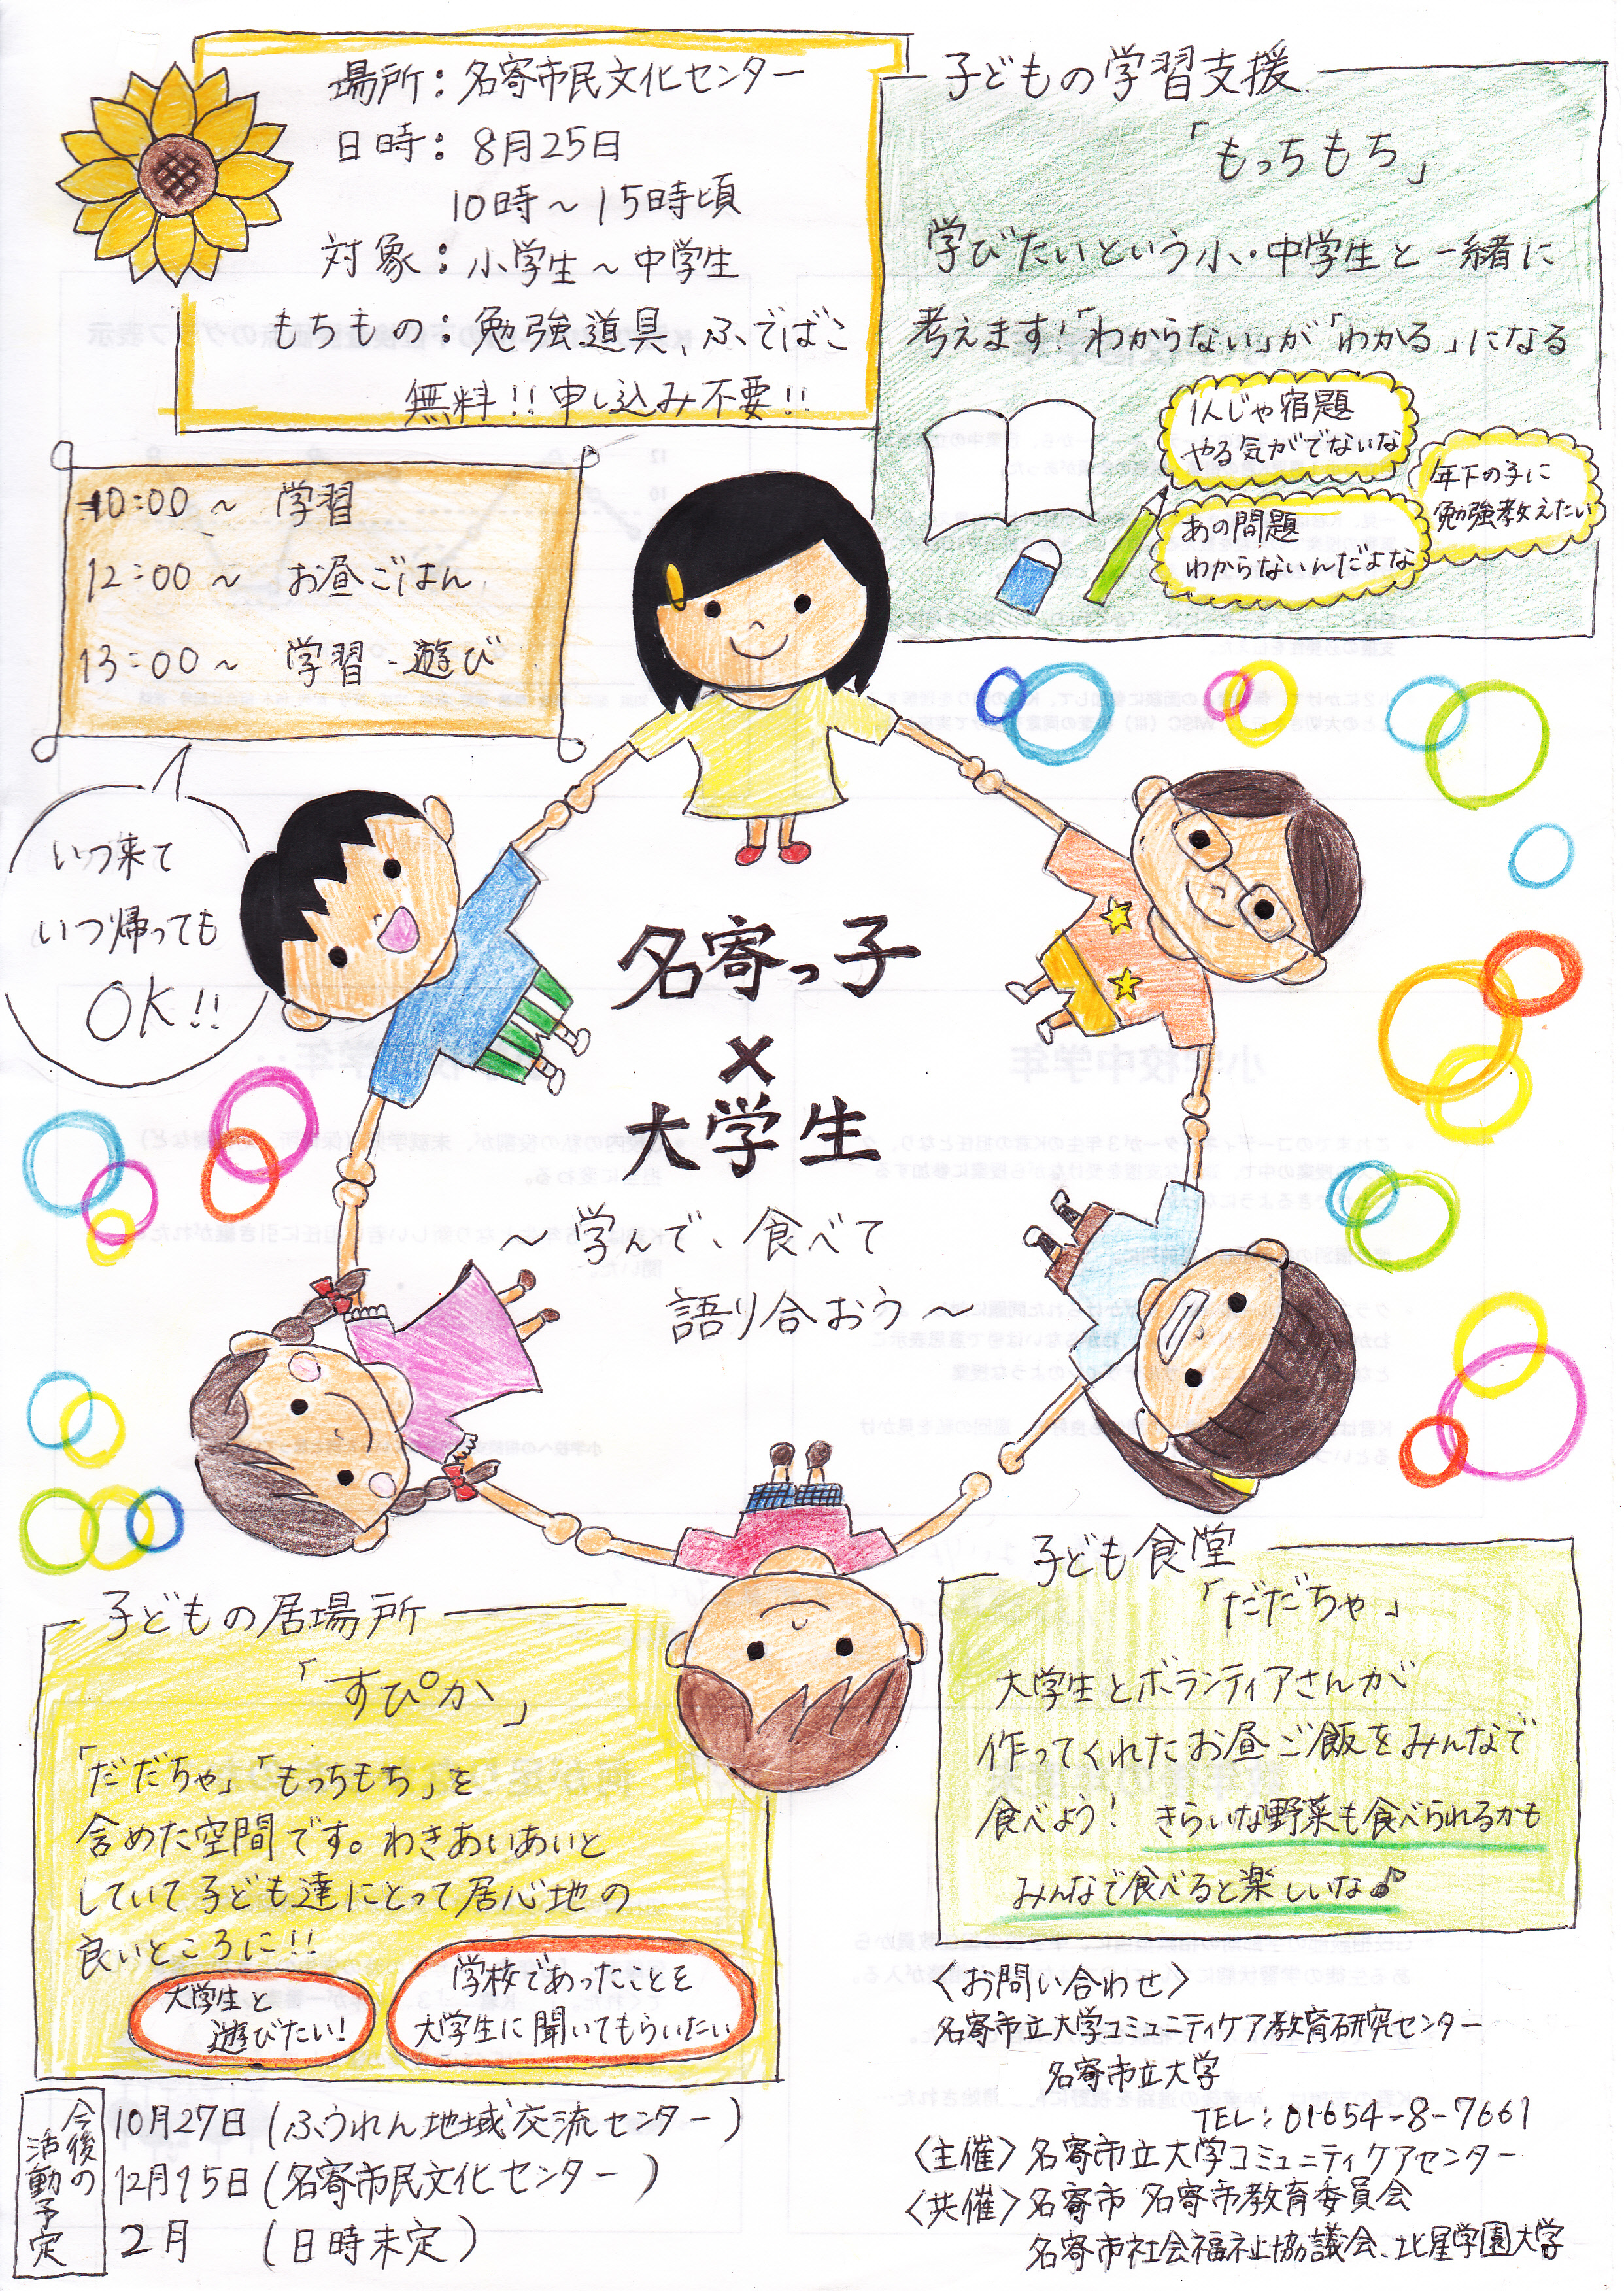 場所：名寄市民文化センター
日時：8月25日
10時～15時頃
対象：小学生～中学生
もちもの：勉強道具、ふでばこ
無料!!申し込み不要!!
子どもの学習支援
「もっちもち」
学びたいという小・中学生と一緒に
考えます!「わからない」が「わかる」になる
1人じゃ宿題
やる気がでないな
年下の子に
勉強教えたい
あの問題
わからないんだよな
10:00～ 学習
12:00～ お昼ごはん
13:00～ 学習・遊び
いつ来て
いつ帰っても
OK!!
名寄っ子
×
大学生
～学んで、食べて
語り合おう～
子どもの居場所
「すぴか」
「だだちゃ」「もっちもち」を
含めた空間です。わきあいあいと
していて子ども達にとって居心地の
良いところに!!
大学生と
遊びたい!
学校であったことを
大学生に聞いてもらいたい
子ども食堂
「だだちゃ」
大学生とボランティアさんが
作ってくれたお昼ご飯をみんなで
食べよう! きらいな野菜も食べられるかも
みんなで食べると楽しいな♪
今後の
活動予定
10月27日(ふうれん地域交流センター)
12月15日(名寄市民文化センター)
2月 (日時未定)
〈お問い合わせ〉
名寄市立大学コミュニティケア教育研究センター
名寄市立大学
TEL:01654-8-7661
〈主催〉名寄市立大学コミュニティケアセンター
〈共催〉名寄市 名寄市教育委員会
名寄市社会福祉協議会、北星学園大学